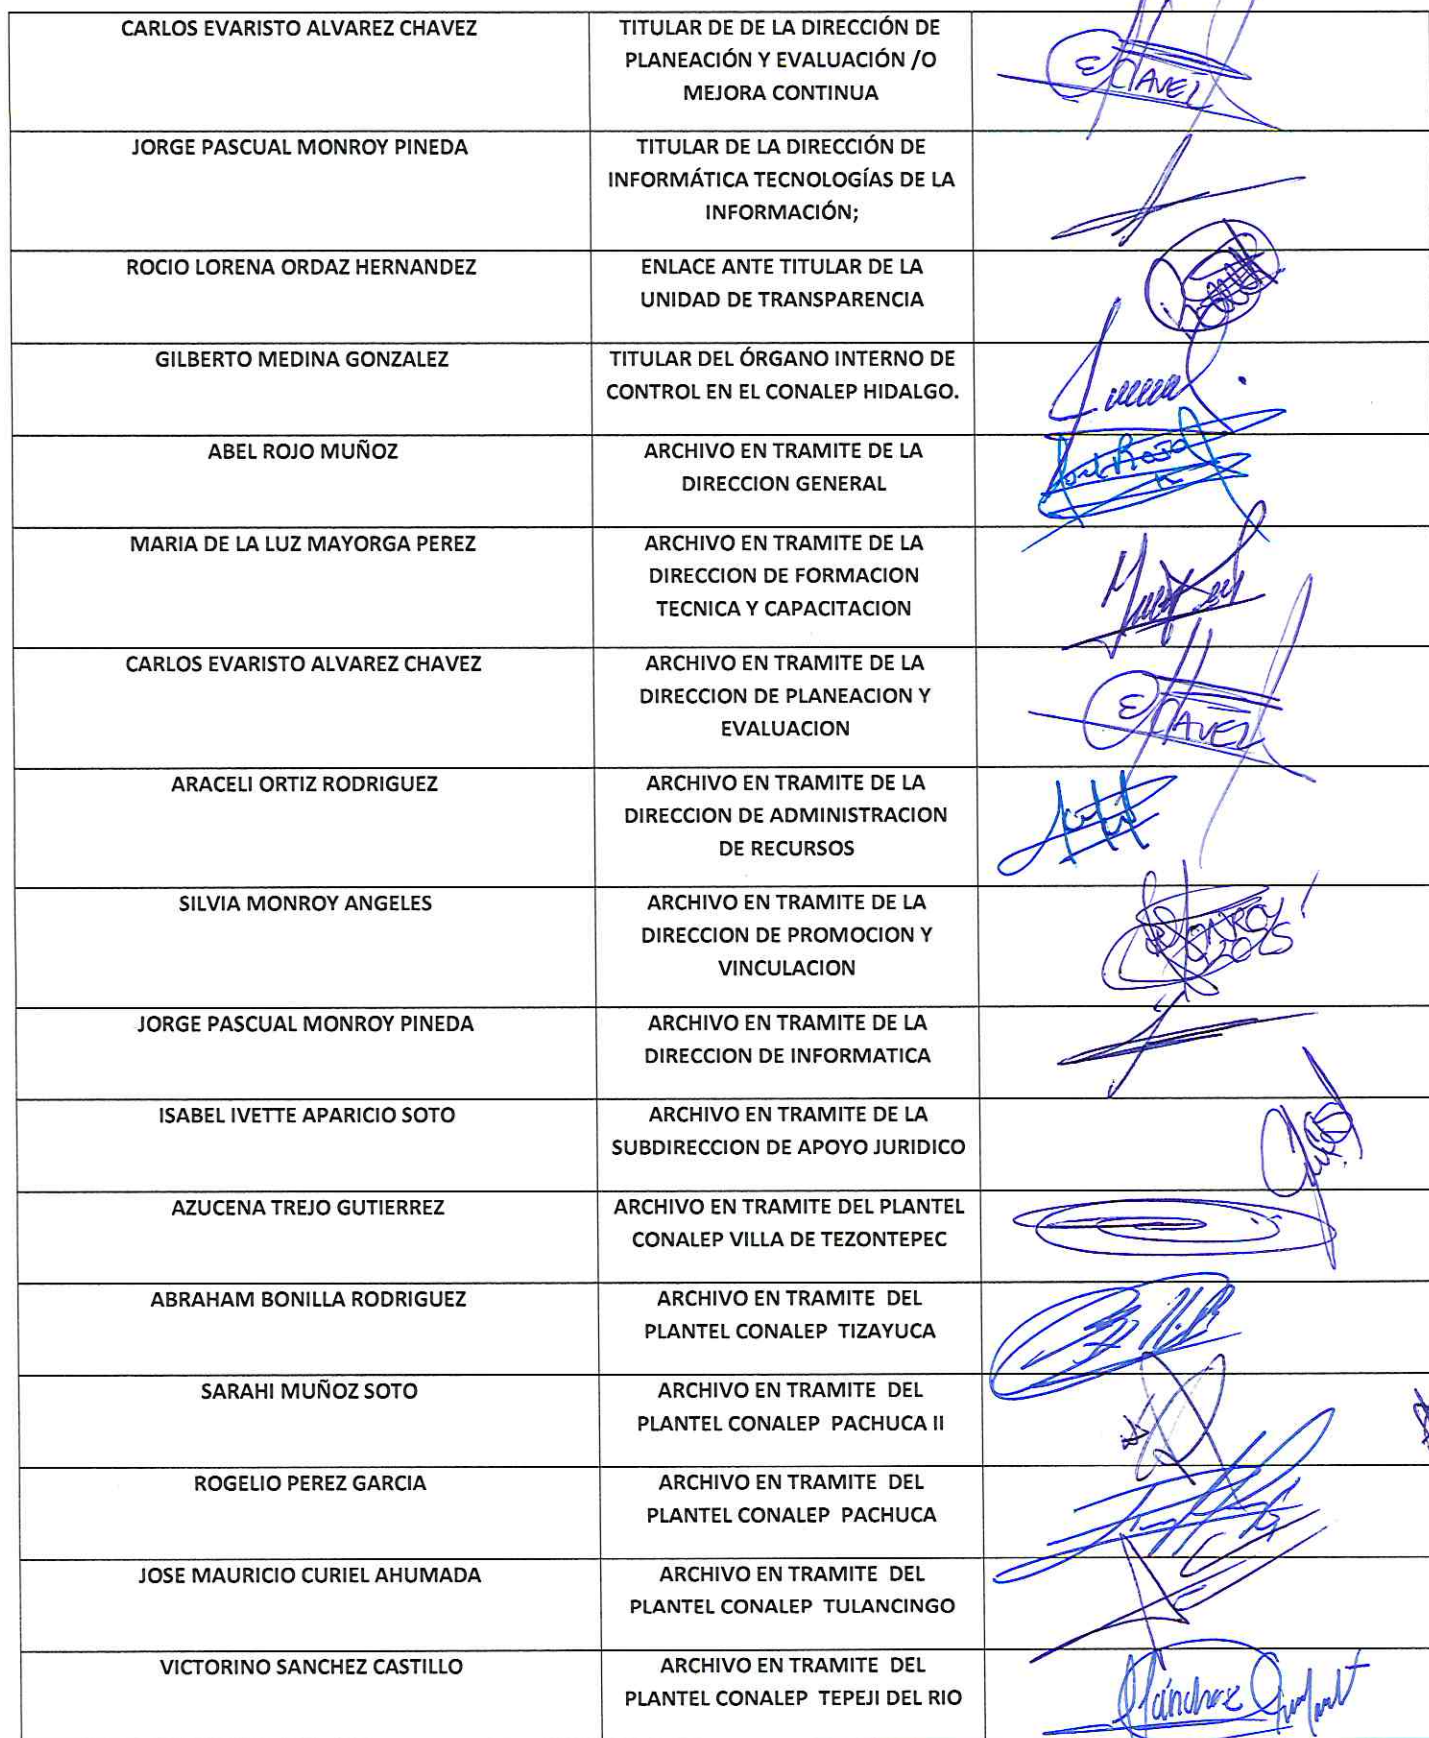 CARLOS EVARISTO ALVAREZ CHAVEZ
TITULAR DE DE LA DIRECCIÓN DE
PLANEACIÓN Y EVALUACIÓN /O
MEJORA CONTINUA
JORGE PASCUAL MONROY PINEDA
TITULAR DE LA DIRECCIÓN DE
INFORMÁTICA TECNOLOGÍAS DE LA
INFORMACIÓN;
ROCIO LORENA ORDAZ HERNANDEZ
ENLACE ANTE TITULAR DE LA
UNIDAD DE TRANSPARENCIA
GILBERTO MEDINA GONZALEZ
TITULAR DEL ÓRGANO INTERNO DE
CONTROL EN EL CONALEP HIDALGO.
ABEL ROJO MUÑOZ
ARCHIVO EN TRAMITE DE LA
DIRECCION GENERAL
MARIA DE LA LUZ MAYORGA PEREZ
ARCHIVO EN TRAMITE DE LA
DIRECCION DE FORMACION
TECNICA Y CAPACITACION
CARLOS EVARISTO ALVAREZ CHAVEZ
ARCHIVO EN TRAMITE DE LA
DIRECCION DE PLANEACION Y
EVALUACION
ARACELI ORTIZ RODRIGUEZ
ARCHIVO EN TRAMITE DE LA
DIRECCION DE ADMINISTRACION
DE RECURSOS
SILVIA MONROY ANGELES
ARCHIVO EN TRAMITE DE LA
DIRECCION DE PROMOCION Y
VINCULACION
JORGE PASCUAL MONROY PINEDA
ARCHIVO EN TRAMITE DE LA
DIRECCION DE INFORMATICA
ISABEL IVETTE APARICIO SOTO
ARCHIVO EN TRAMITE DE LA
SUBDIRECCION DE APOYO JURIDICO
AZUCENA TREJO GUTIERREZ
ARCHIVO EN TRAMITE DEL PLANTEL
CONALEP VILLA DE TEZONTEPEC
ABRAHAM BONILLA RODRIGUEZ
ARCHIVO EN TRAMITE DEL
PLANTEL CONALEP TIZAYUCA
SARAHI MUÑOZ SOTO
ARCHIVO EN TRAMITE DEL
PLANTEL CONALEP PACHUCA II
ROGELIO PEREZ GARCIA
ARCHIVO EN TRAMITE DEL
PLANTEL CONALEP PACHUCA
JOSE MAURICIO CURIEL AHUMADA
ARCHIVO EN TRAMITE DEL
PLANTEL CONALEP TULANCINGO
VICTORINO SANCHEZ CASTILLO
ARCHIVO EN TRAMITE DEL
PLANTEL CONALEP TEPEJI DEL RIO
Sánchez